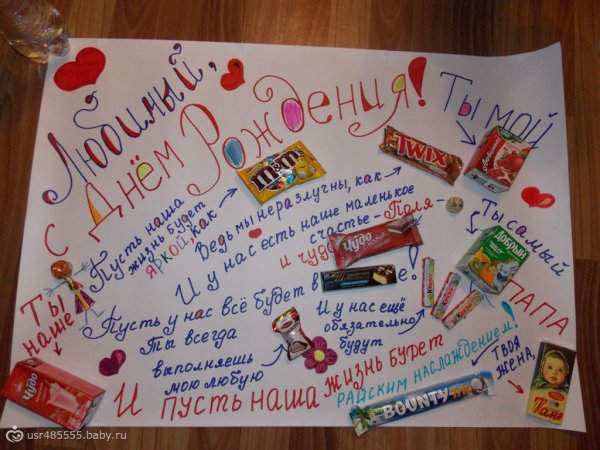 Любимый,
с Днём Рождения!
Ты мой
Любимый
Пусть наша
жизнь будет
яркой, как
m&m's
Ведь мы неразлучны, как
TWIX
И у нас есть наше маленькое
счастье - Поля -
и чудо
Чудо
Ты самый
Добрый
ПАПА
Пусть у нас всё будет в
е!
Ты всегда
выполняешь
мою любую
И у нас ещё
обязательно
будут
Kinder
Kinder
Kinder
Ты
наше
Чудо
И пусть наша жизнь будет
райским наслаждением!
BOUNTY
твоя
жена,
Таня
usr485555.baby.ru